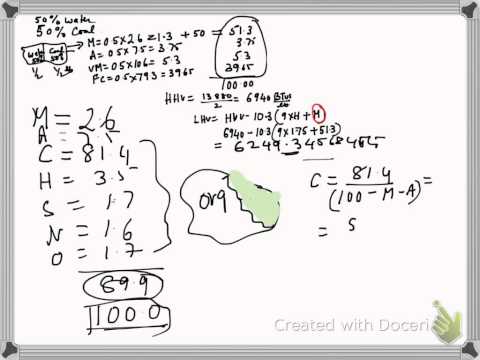 50% water
50% Coal
Water 50%
Coal 50%
1/2
1/2 lb
M = 0.5 X 2.6 = 1.3 + 50 =
A = 0.5 X 7.5 = 3.75
VM = 0.5 X 10.6 = 5.3
FC = 0.5 X 79.3 = 39.65
51.3
3.75
5.3
39.65
100.00
HHV = 13880 / 2 = 6940 BTUs / lb
LHV = HHV - 10.3 (9 X H + M)
6940 - 10.3 (9 X 1.75 + 51.3)
= 6249.3
M = 2.6
A =
C = 81.4
H = 3.5
S = 1.7
N = 1.6
O = 1.7
89.9
100.0
org
C = 81.4 / (100 - M - A) =
= 5
Created with Doceri